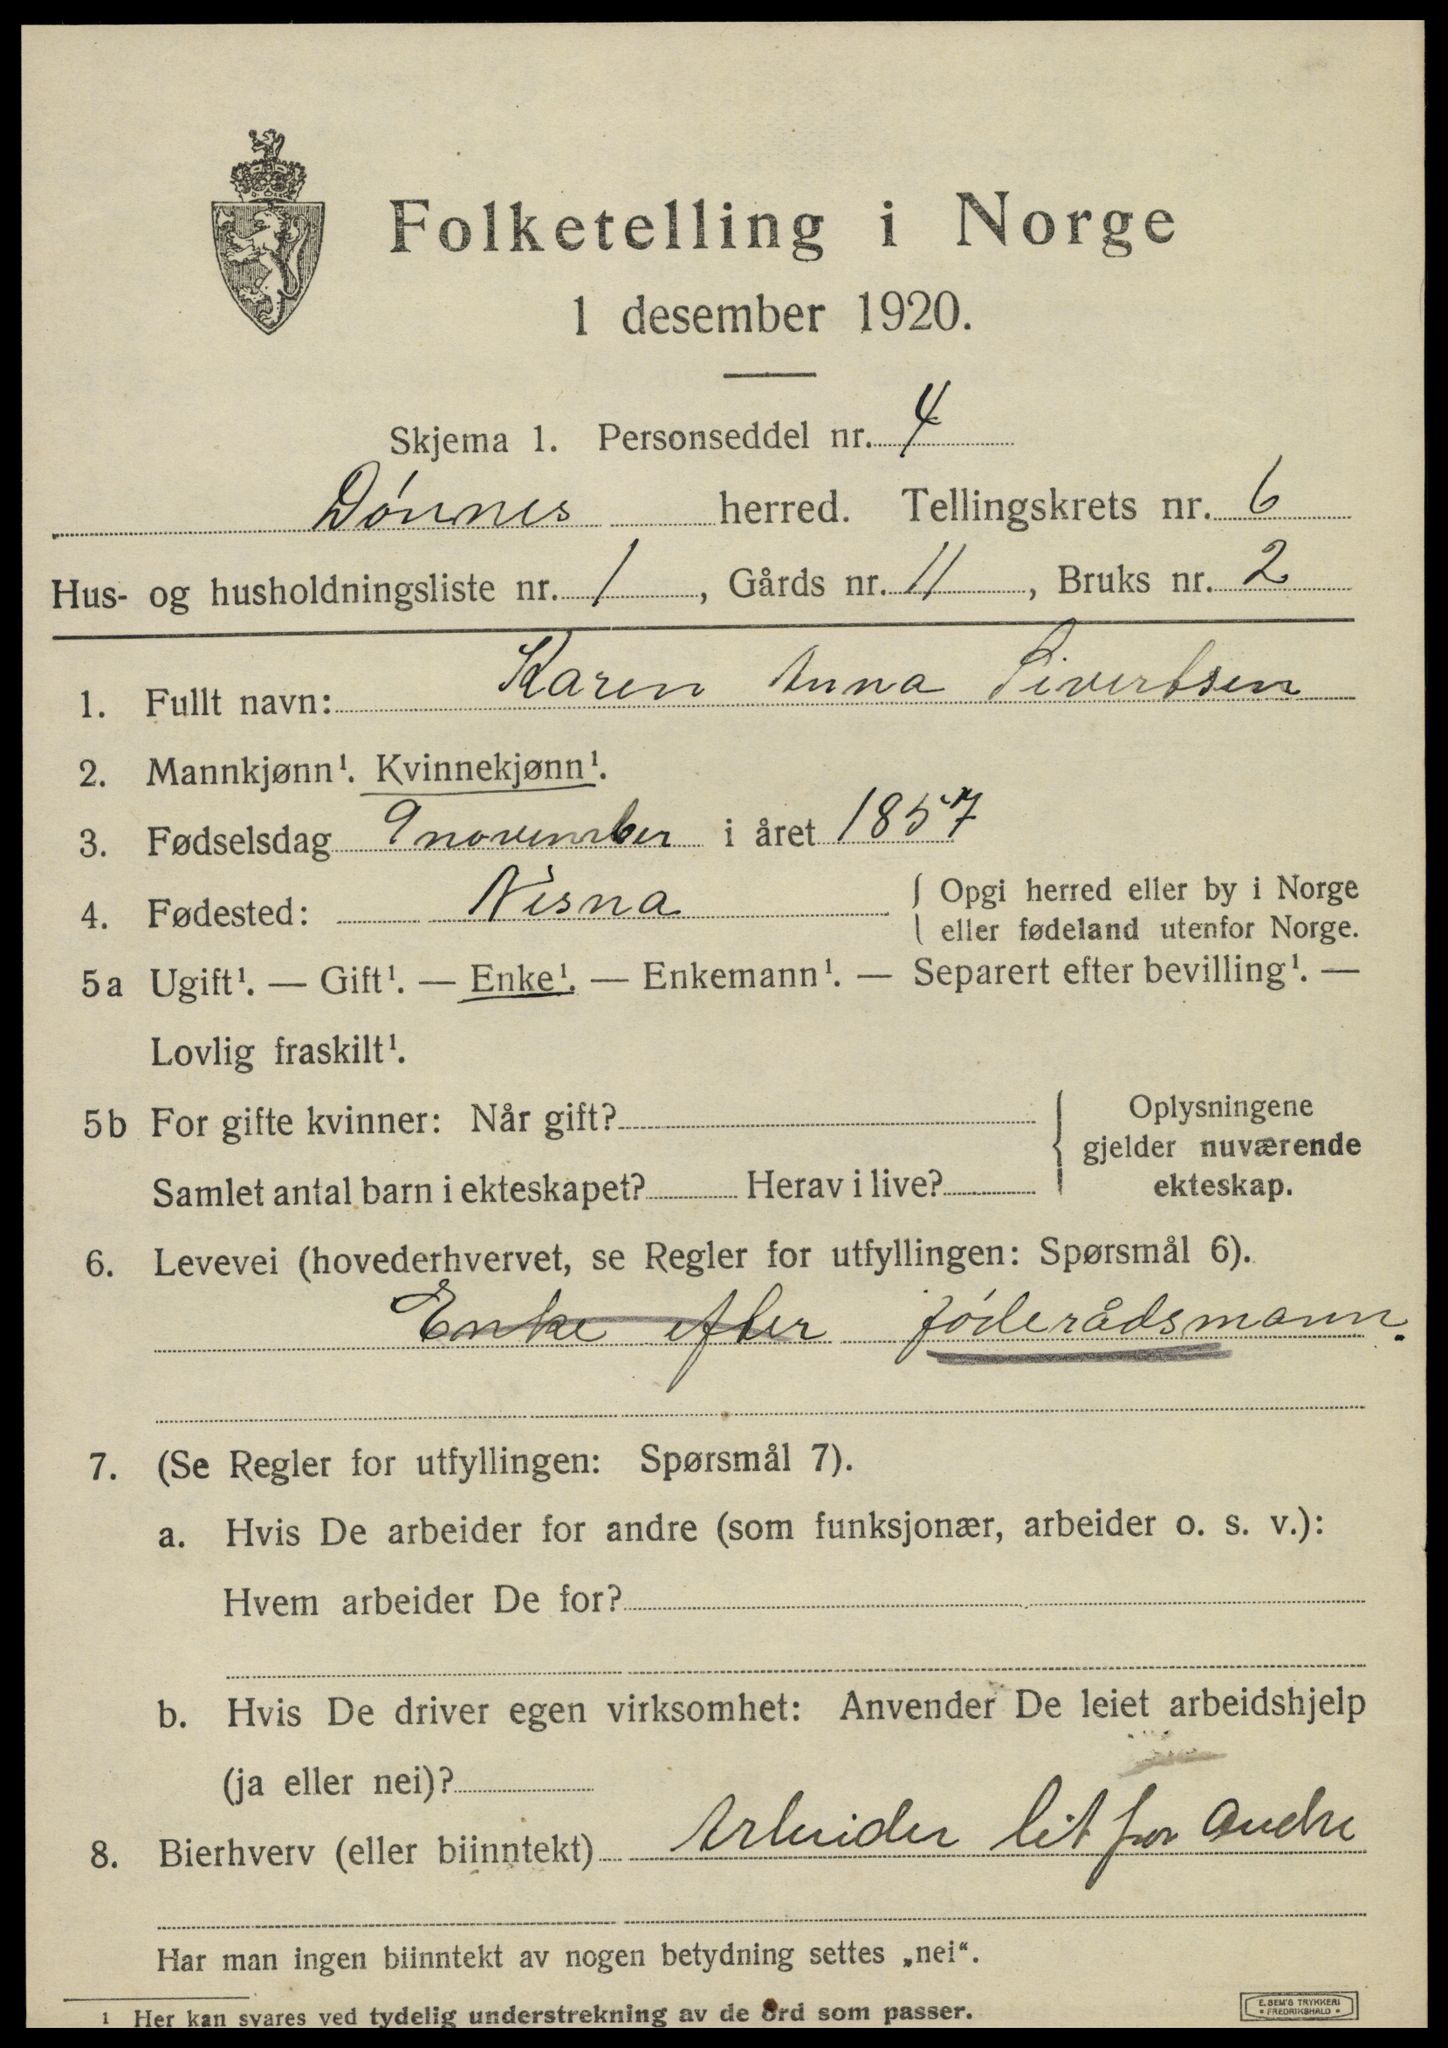 Folketelling i Norge
1 desember 1920.
Skjema 1. Personseddel nr. 4
Dónnes herred. Tellingskrets nr. 6
Hus- og husholdningsliste nr. 1, Gårds nr. 11, Bruks nr. 2
1. Fullt navn: Karen Anna Sivertsen
2. Mannkjønn¹. Kvinnekjønn¹.
3. Fødselsdag 9 november i året 1857
4. Fødested: Nesna { Opgi herred eller by i Norge
eller fødeland utenfor Norge.
5a Ugift¹. — Gift¹. — Enke¹. — Enkemann¹. — Separert efter bevilling¹. —
Lovlig fraskilt¹.
5b For gifte kvinner: Når gift?
Samlet antal barn i ekteskapet? Herav i live?
Oplysningene
gjelder nuværende
ekteskap.
6. Levevei (hovederhvervet, se Regler for utfyllingen: Spørsmål 6).
Enke efter föderådsmann.
7. (Se Regler for utfyllingen: Spørsmål 7).
a. Hvis De arbeider for andre (som funksjonær, arbeider o. s. v.):
Hvem arbeider De for?
b. Hvis De driver egen virksomhet: Anvender De leiet arbeidshjelp
(ja eller nei)?
8. Bierhverv (eller biinntekt) Arbeider lit for andre
Har man ingen biinntekt av nogen betydning settes „nei“.
¹ Her kan svares ved tydelig understrekning av de ord som passer.
E. SEM'S TRYKKERI
• FREDRIKSHALD •